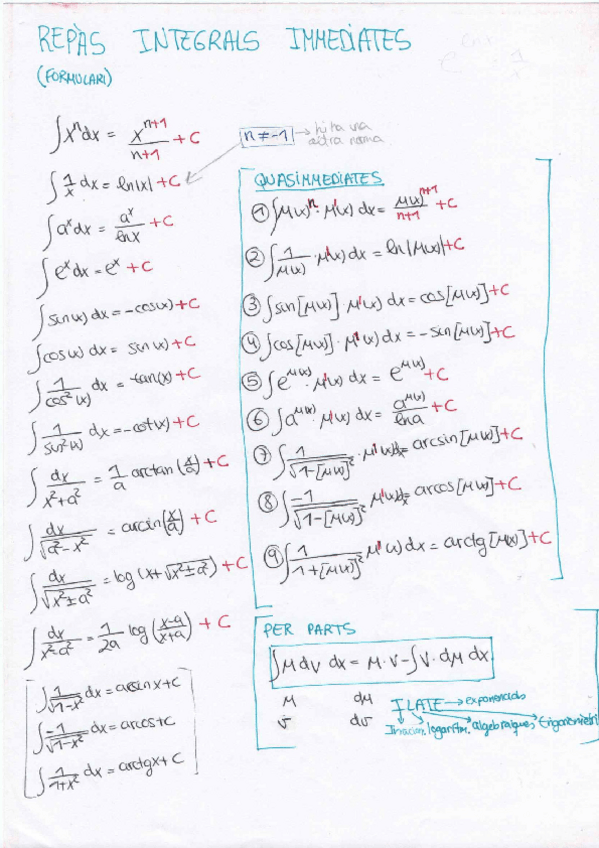 REPÀS INTEGRALS IMMEDIATES
(FORMULARI)
∫xⁿdx = xⁿ⁺¹/n+1 + C
n ≠ -1 → hi ha una altra norma
∫1/x dx = ln|x| + C
∫aˣdx = aˣ/lnx + C
∫eˣdx = eˣ + C
∫sin(x) dx = -cos(x) + C
∫cos(x) dx = sin(x) + C
∫1/cos²(x) dx = tan(x) + C
∫1/sin²(x) dx = -cot(x) + C
∫dx/x²+a² = 1/a arctan(x/a) + C
∫dx/√a²-x² = arcsin(x/a) + C
∫dx/√x²±a² = log(x+√x²±a²) + C
∫dx/x²-a² = 1/2a log(x-a/x+a) + C
∫1/√1-x² dx = arcsinx + C
∫-1/√1-x² dx = arcos + C
∫1/1+x² dx = arctgx + C
QUASIMMEDIATES
① ∫μ(x)ⁿ · μ'(x) dx = μ(x)ⁿ⁺¹/n+1 + C
② ∫1/μ(x) · μ'(x) dx = ln|μ(x)| + C
③ ∫sin[μ(x)] · μ'(x) dx = cos[μ(x)] + C
④ ∫cos[μ(x)] · μ'(x) dx = -sin[μ(x)] + C
⑤ ∫e^μ(x) · μ'(x) dx = e^μ(x) + C
⑥ ∫a^μ(x) · μ'(x) dx = a^μ(x)/lna + C
⑦ ∫1/√1-[μ(x)]² · μ'(x)dx = arcsin[μ(x)] + C
⑧ ∫-1/√1-[μ(x)]² μ'(x)dx = arcos[μ(x)] + C
⑨ ∫1/1+[μ(x)]² μ'(x) dx = arctg[μ(x)] + C
PER PARTS
∫μ dv dx = μ·v - ∫v·dμ dx
μ dμ
v dv
ILATE → exponencials
logaritm. algebraiques, trigonometri